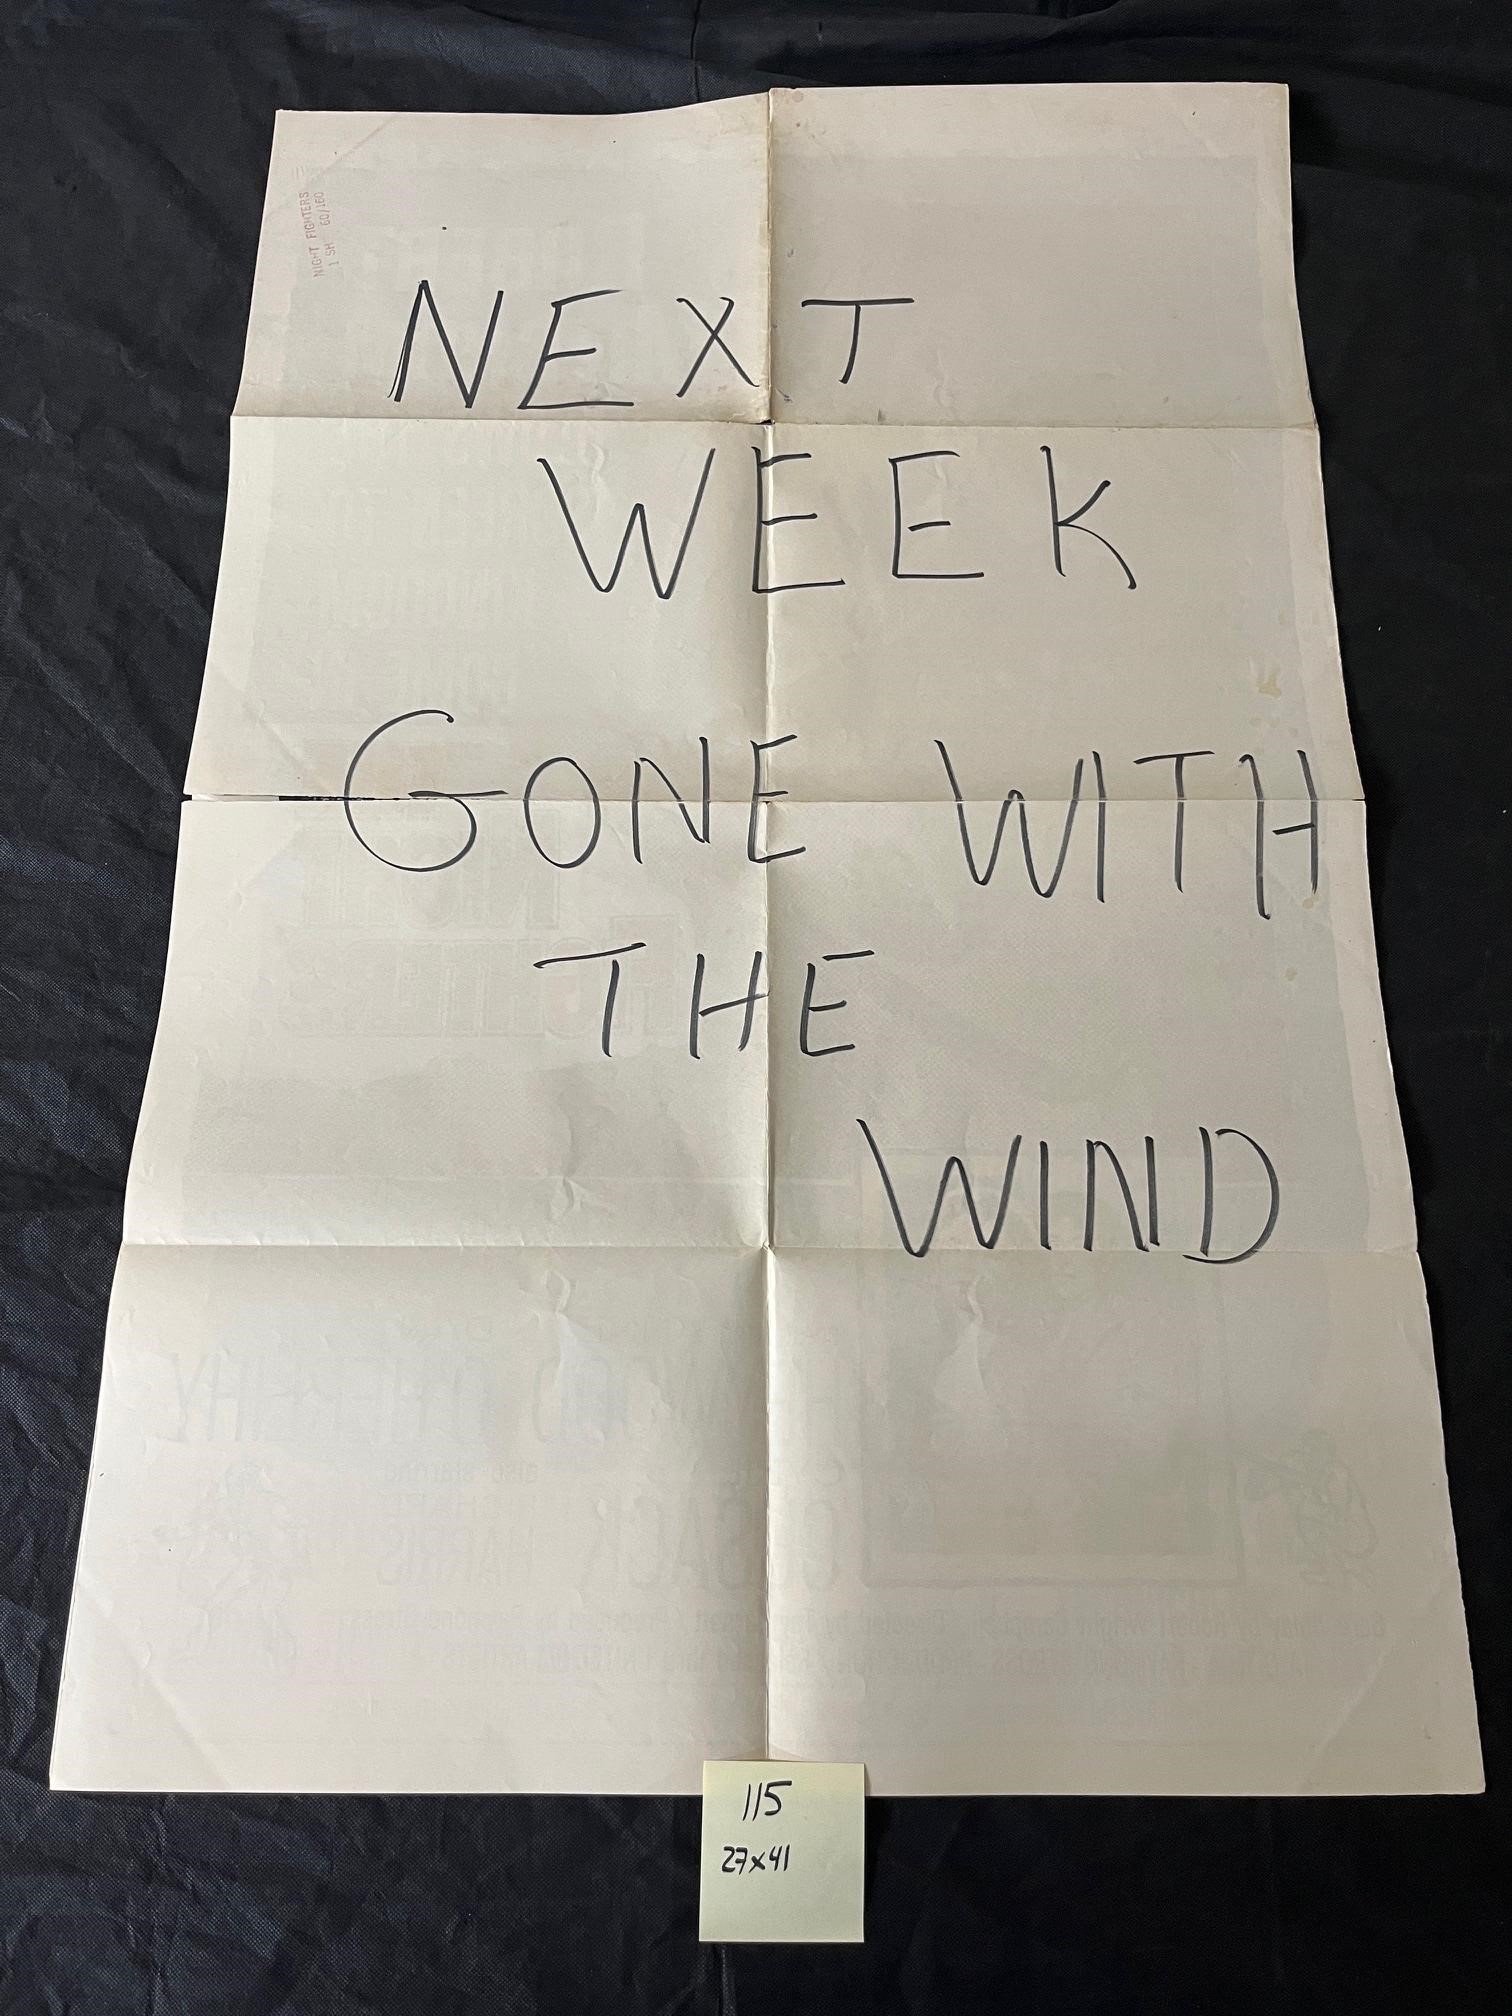 NIGHT FIGHTERS
1 SH 60/160
NEXT
WEEK
GONE WITH
THE
WIND
also starring
HARRIS
115
27x41